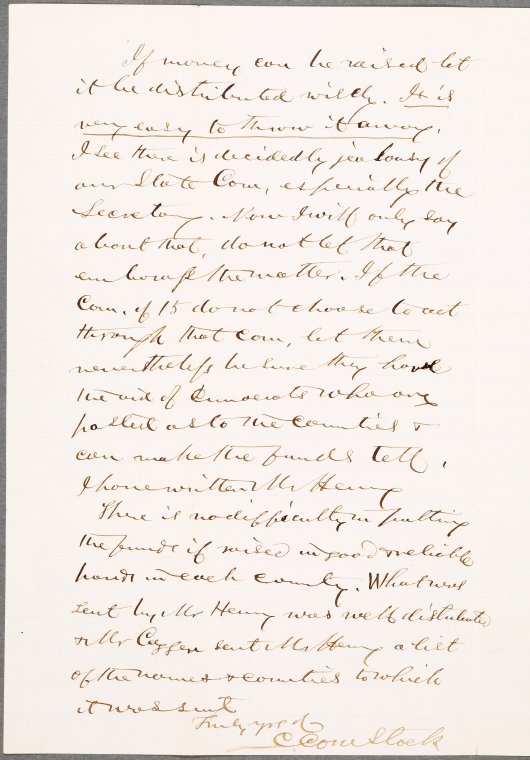 If money can be raised let
it be distributed wisely. It is
very easy to throw it away.
I see there is decidedly jealousy of
our State Com, especially the
Secretary. Now I will only say
about that, do not let that
embarrass the matter. If the
Com. of 15 do not choose to act
through that com, let them
nevertheless be sure they have
the aid of Democrats who are
posted as to the counties &
can make the funds tell.
I have written Mr Henry
There is no difficulty in putting
the funds if raised in good & reliable
hands in each county. What was
sent by Mr Henry was well distributed
& Mr sent Mr Henry a list
of the names & counties to which
it was sent
Truly yrs
C. Comstock